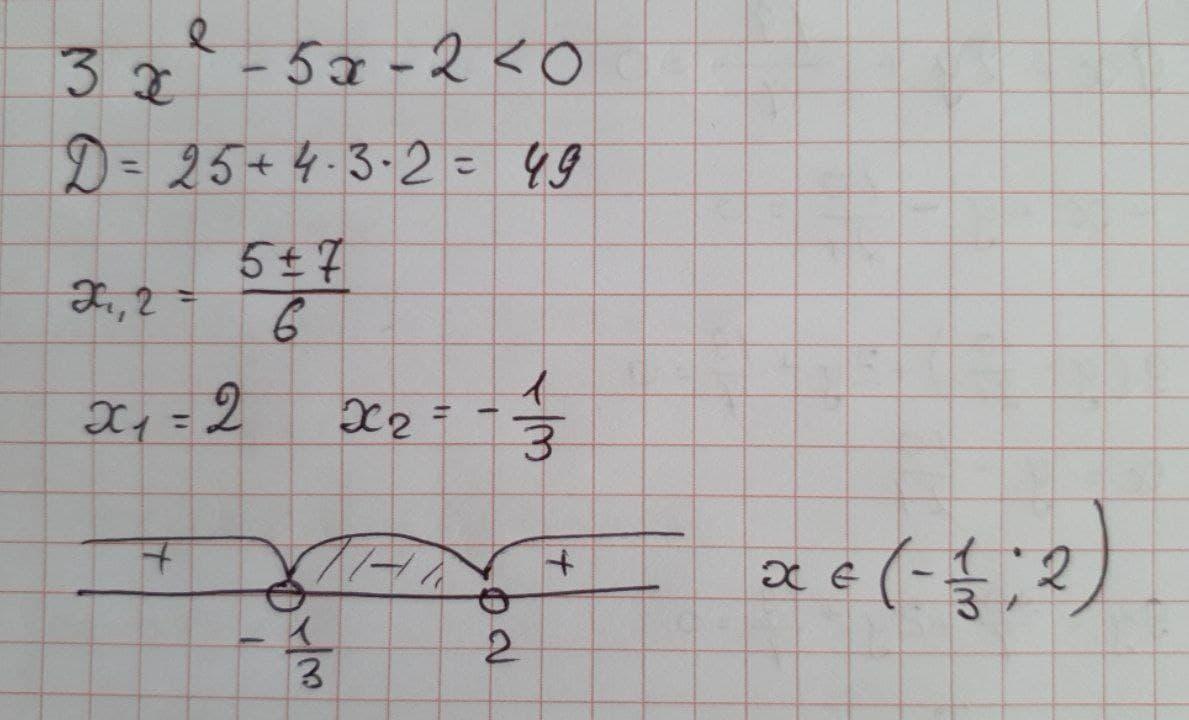 3x² - 5x - 2 < 0
D = 25 + 4·3·2 = 49
x₁,₂ = (5 ± 7)/6
x₁ = 2 x₂ = -1/3
+ - + x ∈ (-1/3; 2)
-1/3 2